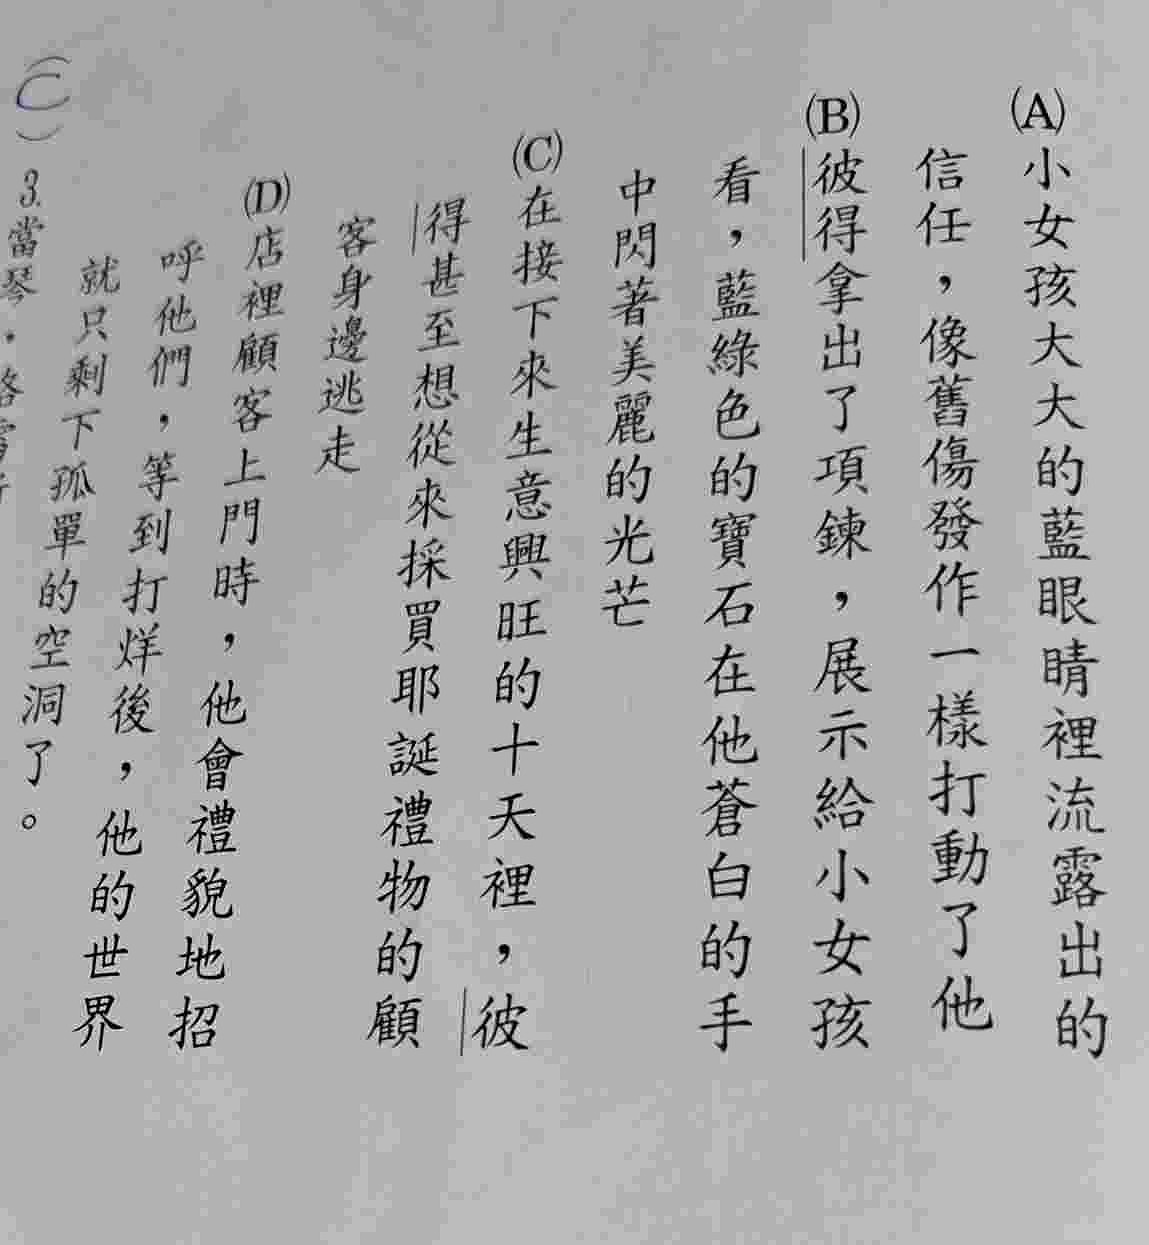 (A)小女孩大大的藍眼睛裡流露出的
信任，像舊傷發作一樣打動了他
(B)彼得拿出了項鍊，展示給小女孩
看，藍綠色的寶石在他蒼白的手
中閃著美麗的光芒
(C)在接下來生意興旺的十天裡，彼
得甚至想從來採買耶誕禮物的顧
客身邊逃走
(D)店裡顧客上門時，他會禮貌地招
呼他們，等到打烊後，他的世界
就只剩下孤單的空洞了。
(C)3.當琴‧